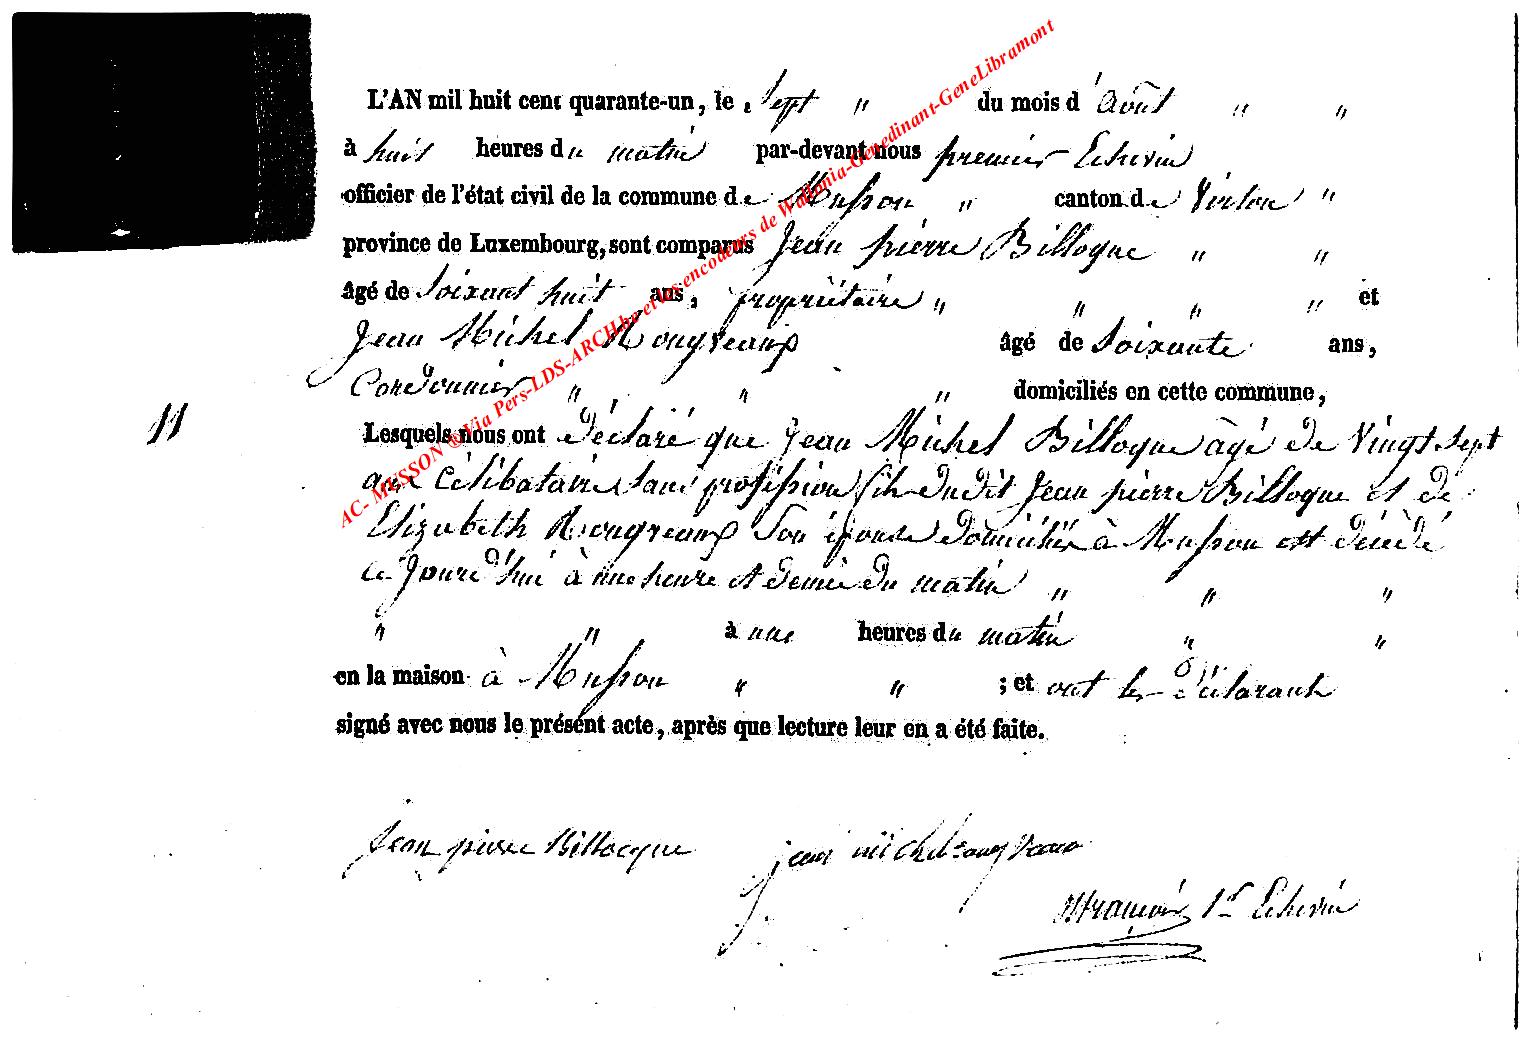 L'AN mil huit cent quarante-un, le Sept " du mois d'Août " "
à huit heures du matin par-devant nous premier Echevin
officier de l'état civil de la commune de Musson " canton de Virton "
province de Luxembourg, sont comparus Jean pierre Billoque " "
âgé de Soixant huit ans, propriétaire " " " " et
Jean Michel Rongveaux âgé de Soixante ans,
Cordonnier " " " domiciliés en cette commune,
11
Lesquels nous ont déclaré que Jean Michel Billoque âgé de Vingt Sept
ans Célibataire Sans profession fils dudit Jean pierre Billoque et de
Elizabeth Rongveaux Son épouse domiciliés à Musson est décédé
ce Jourd'hui à une heure et demie du matin " " "
" " à une heures du matin " "
en la maison à Musson " " ; et ont les déclarants
signé avec nous le présent acte, après que lecture leur en a été faite.
Jean pierre Billocque jean michel
1er Echevin
AC- MUSSON ® Via Pers-LDS-ARCH.be et les encodeurs de Wallonia-Genedinant-GeneLibramont